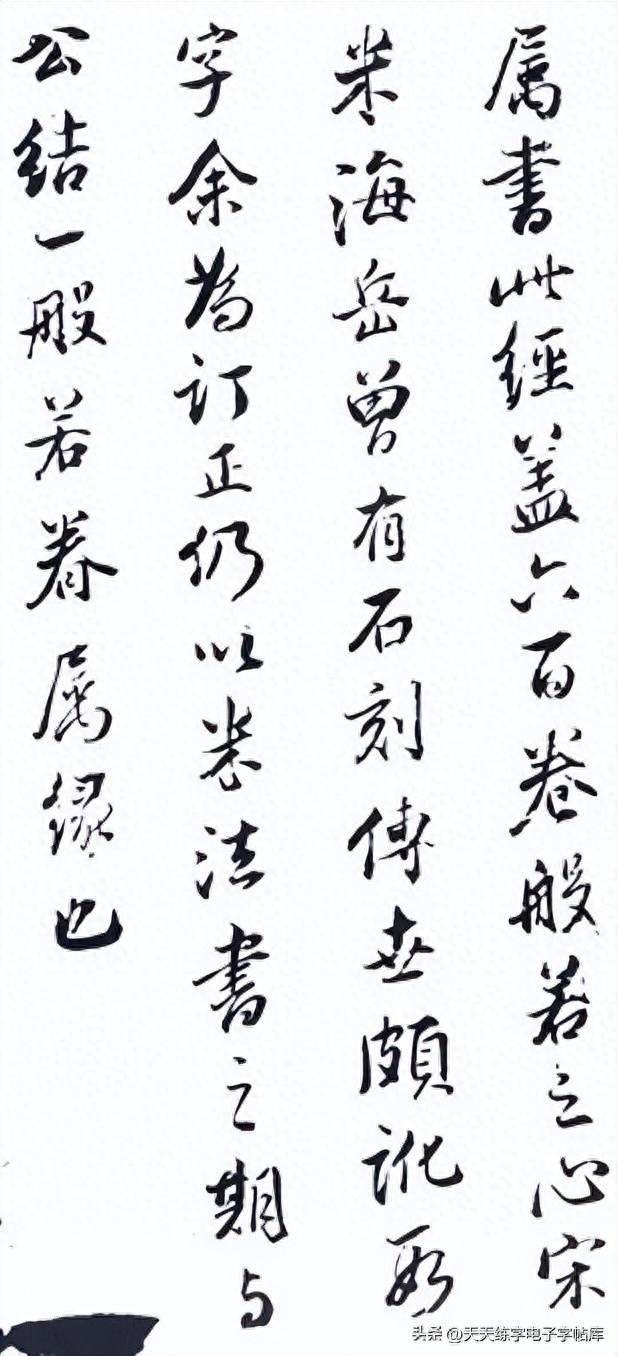 属書此經蓋六百卷般若之心宋
米海岳曾有石刻傳世頗訛數
字余為訂正仍以米法書之期与
公結一般若眷属緣也
头条 @天天练字电子字帖库